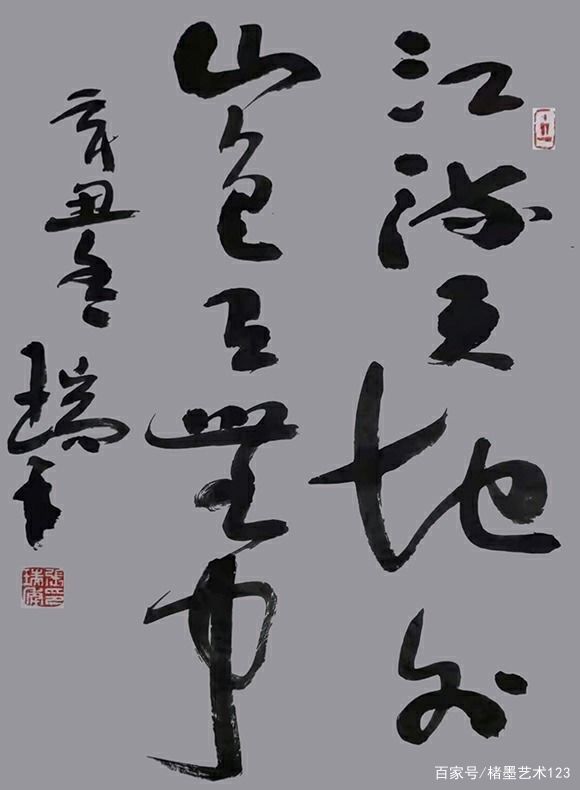 江流天地外
山色有無中
辛丑冬 瑞
百家号/楮墨艺术123